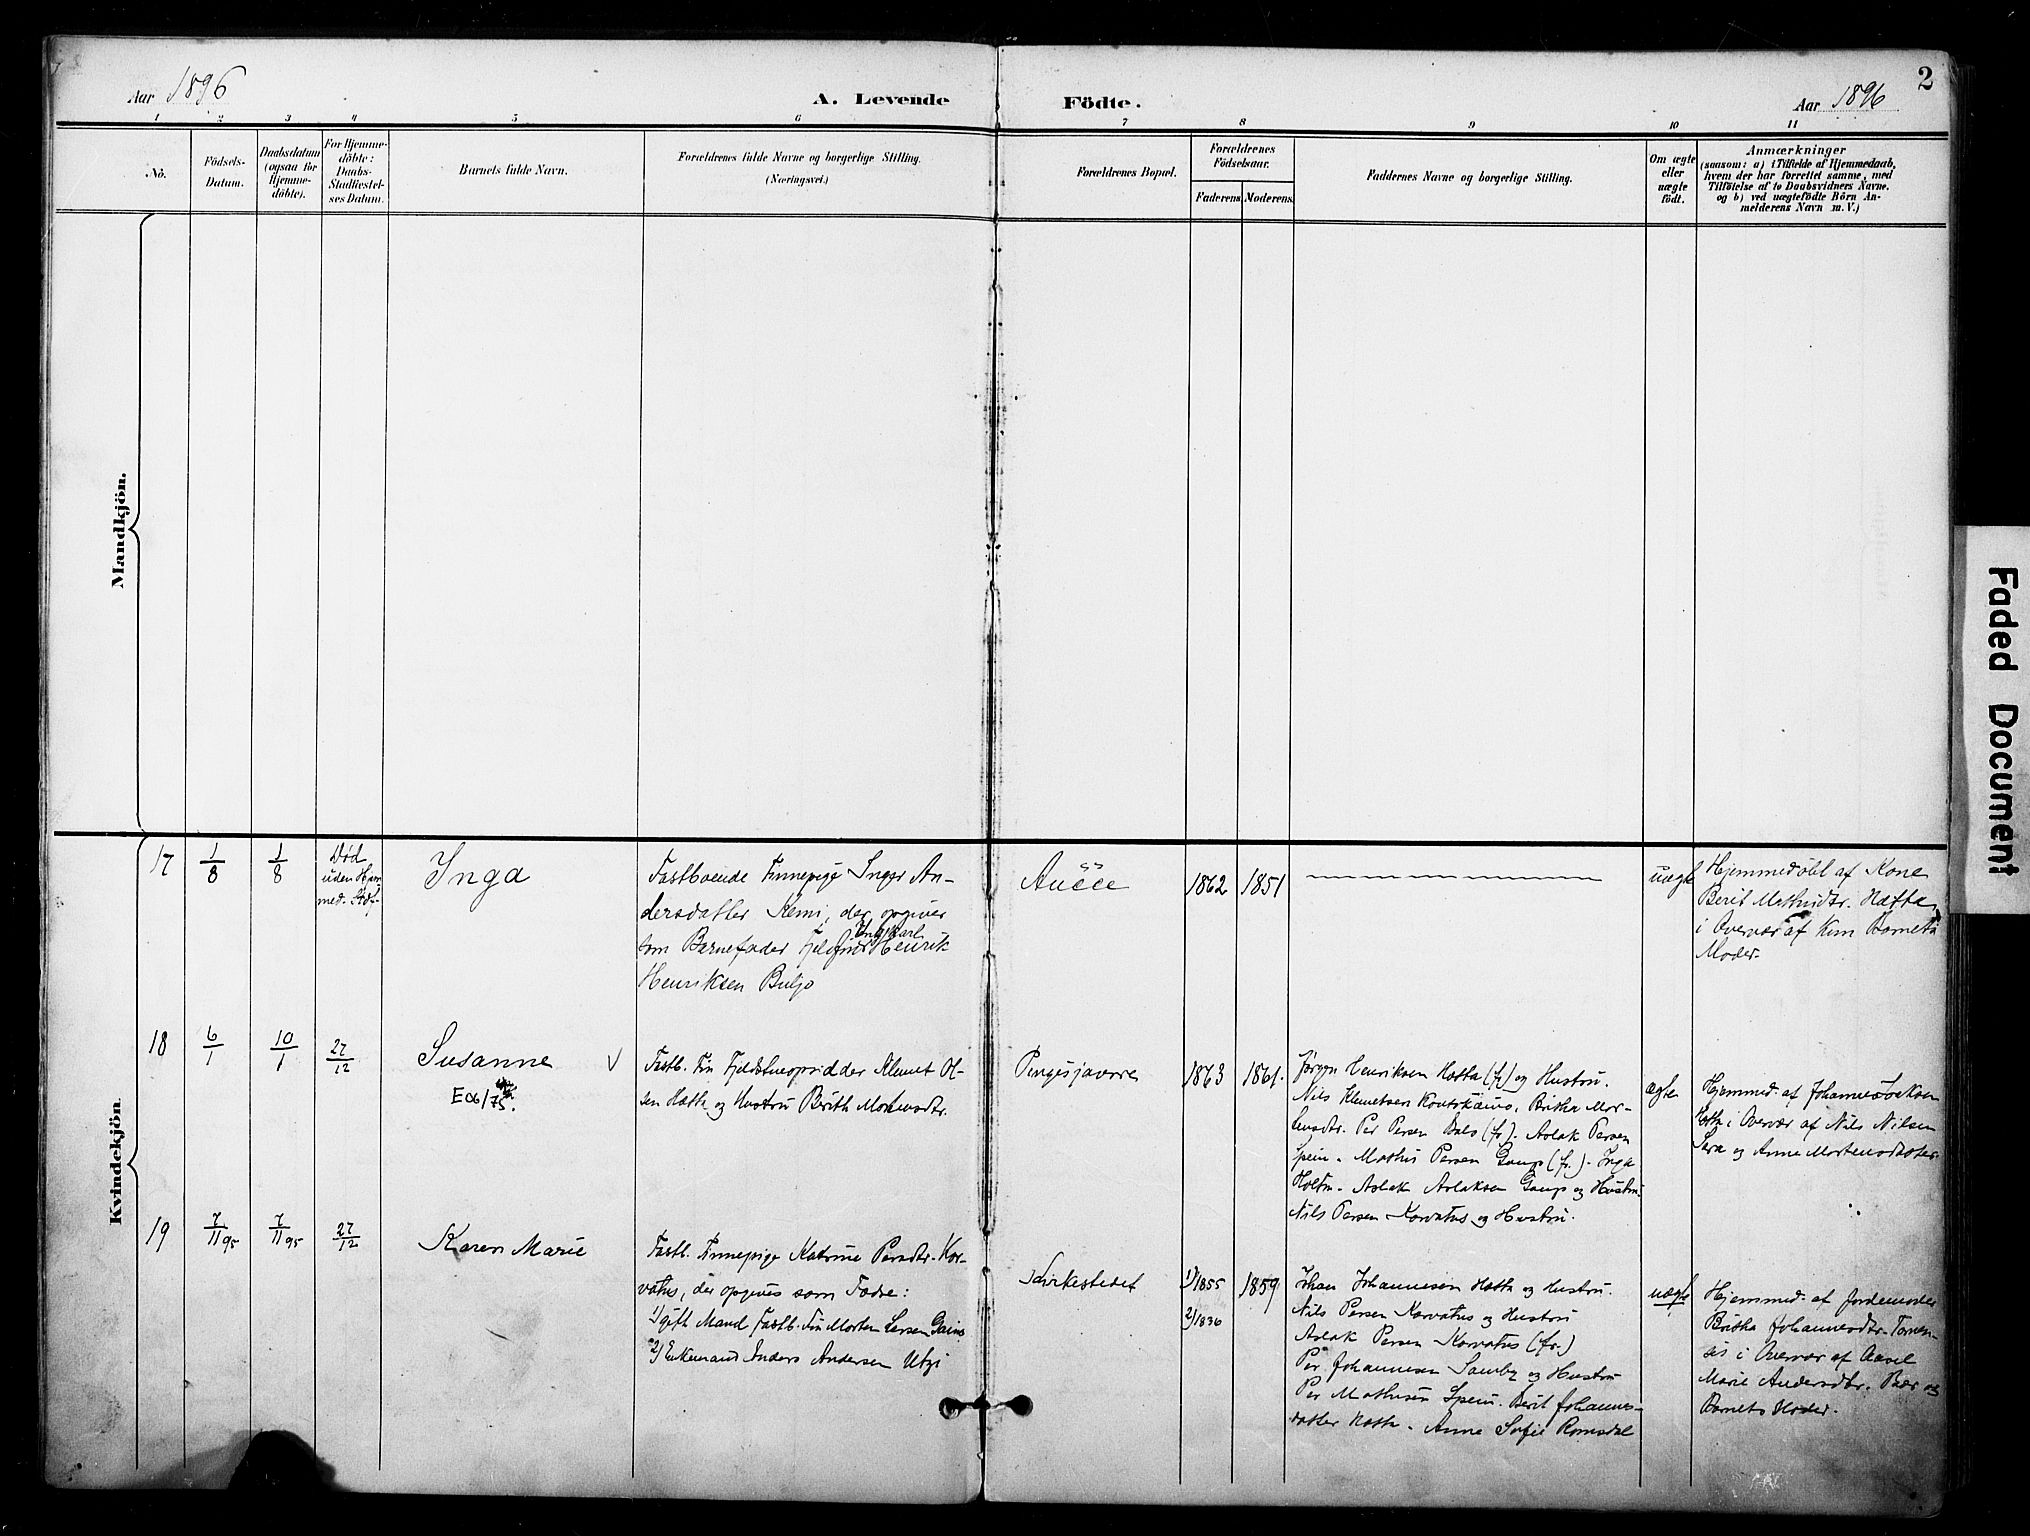 Aar 1896
A. Levende Födte.
Aar 1896
2
1 2 3 4 5 6 7 8 9 10 11
No.
Födsels-
Datum.
Daabsdatum
(ogsaa for
Hjemme-
döbte).
For Hjemme-
döbte:
Daabs-
Stadfæstel-
ses Datum.
Barnets fulde Navn.
Forældrenes fulde Navne og borgerlige Stilling.
(Næringsvei.)
Forældrenes Bopæl.
Forældrenes
Födselsaar.
Faderens.
Moderens.
Faddernes Navne og borgerlige Stilling.
Om ægte
eller
uægte
født.
Anmærkninger
(saasom: a) i Tilfælde af Hjemmedaab,
hvem der har forrettet samme, med
Tilföielse af to Daabsvidners Navne.
og b) ved uægtefödte Börn An-
melderens Navn m. V.)
Mandkjön.
Kvindekjön.
17
1/8
1/8
Død
uden Hjem
med. Stadf.
Inga
Fastboende Finnepige Inger An-
dersdatter Kemi, der opgiver
som Barnefader Fjeldfin Ungkarl Henrik
Henriksen Buljo
Aučče
1862
1851
uægte
Hjemmedøbt af Kone
Berit Mathisdtr. Hætta
i Overvær af kun Barnets
Moder.
18
6/1
10/1
27/12
Susanne V
E06/75.
Fastb. Fin Fjeldstueopsidder Klemet Ol-
sen Hætta og Hustru Berith Mortensdtr.
Pingisjavrre
1863
1861.
Jørgen Henriksen Hætta (fr) og Hustru.
Nils Klemetsen Koutokæino. Britha Mor-
tensdtr. Per Persen Bals (fr). Aslak Persen
Spein. Mathis Persen Gaup (fr.). Inga
Holtm. Aslak Aslaksen Gaup og Hustru.
Nils Persen Korvatus og Hustru.
ægte
Hjemmed. af Johannes Isaksen
Hætta i Overvær af Nils Nilsen
Sara og Anne Mortensdatter.
19
7/11 95
7/11 95
27/12
Karen Marie
Fastb. Finnepige Katrine Persdtr. Kor-
vatus, der opgives som Fadre:
1) gift Mand Fastb. Fin Morten Larsen Gaino
2) Enkemand Anders Andersen Utzi
Kirkestedet
1) 1855
2) 1836
1859
Johan Johannesen Hætta og Hustru.
Nils Persen Korvatus og Hustru
Aslak Persen Korvatus (fr.)
Per Johannesen Samby og Hustru
Per Mathisen Spein. Berit Johannes-
datter Hætta. Anne Sofie Romsdal
uægte
Hjemmed. af Jordemoder
Britha Johannesdtr. Tornen-
sis i Overvær af Axel
Marie Andersdtr. Bær og
Barnets Moder.
Faded Document